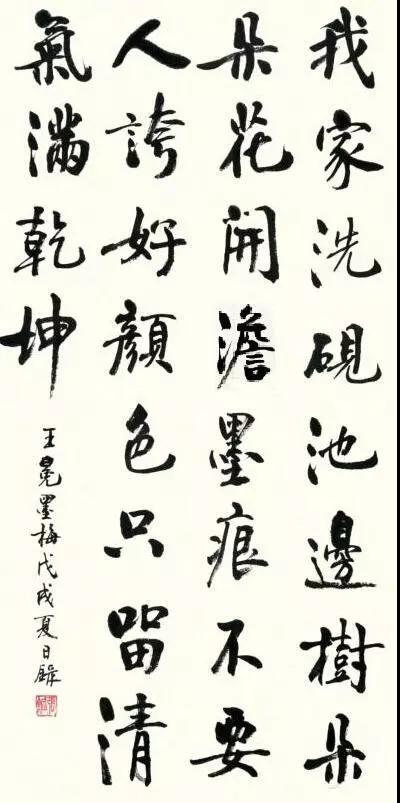 我家洗硯池邊樹朵
朵花開澹墨痕不要
人誇好顏色只留清
氣滿乾坤
王冕墨梅戊戌夏日錄